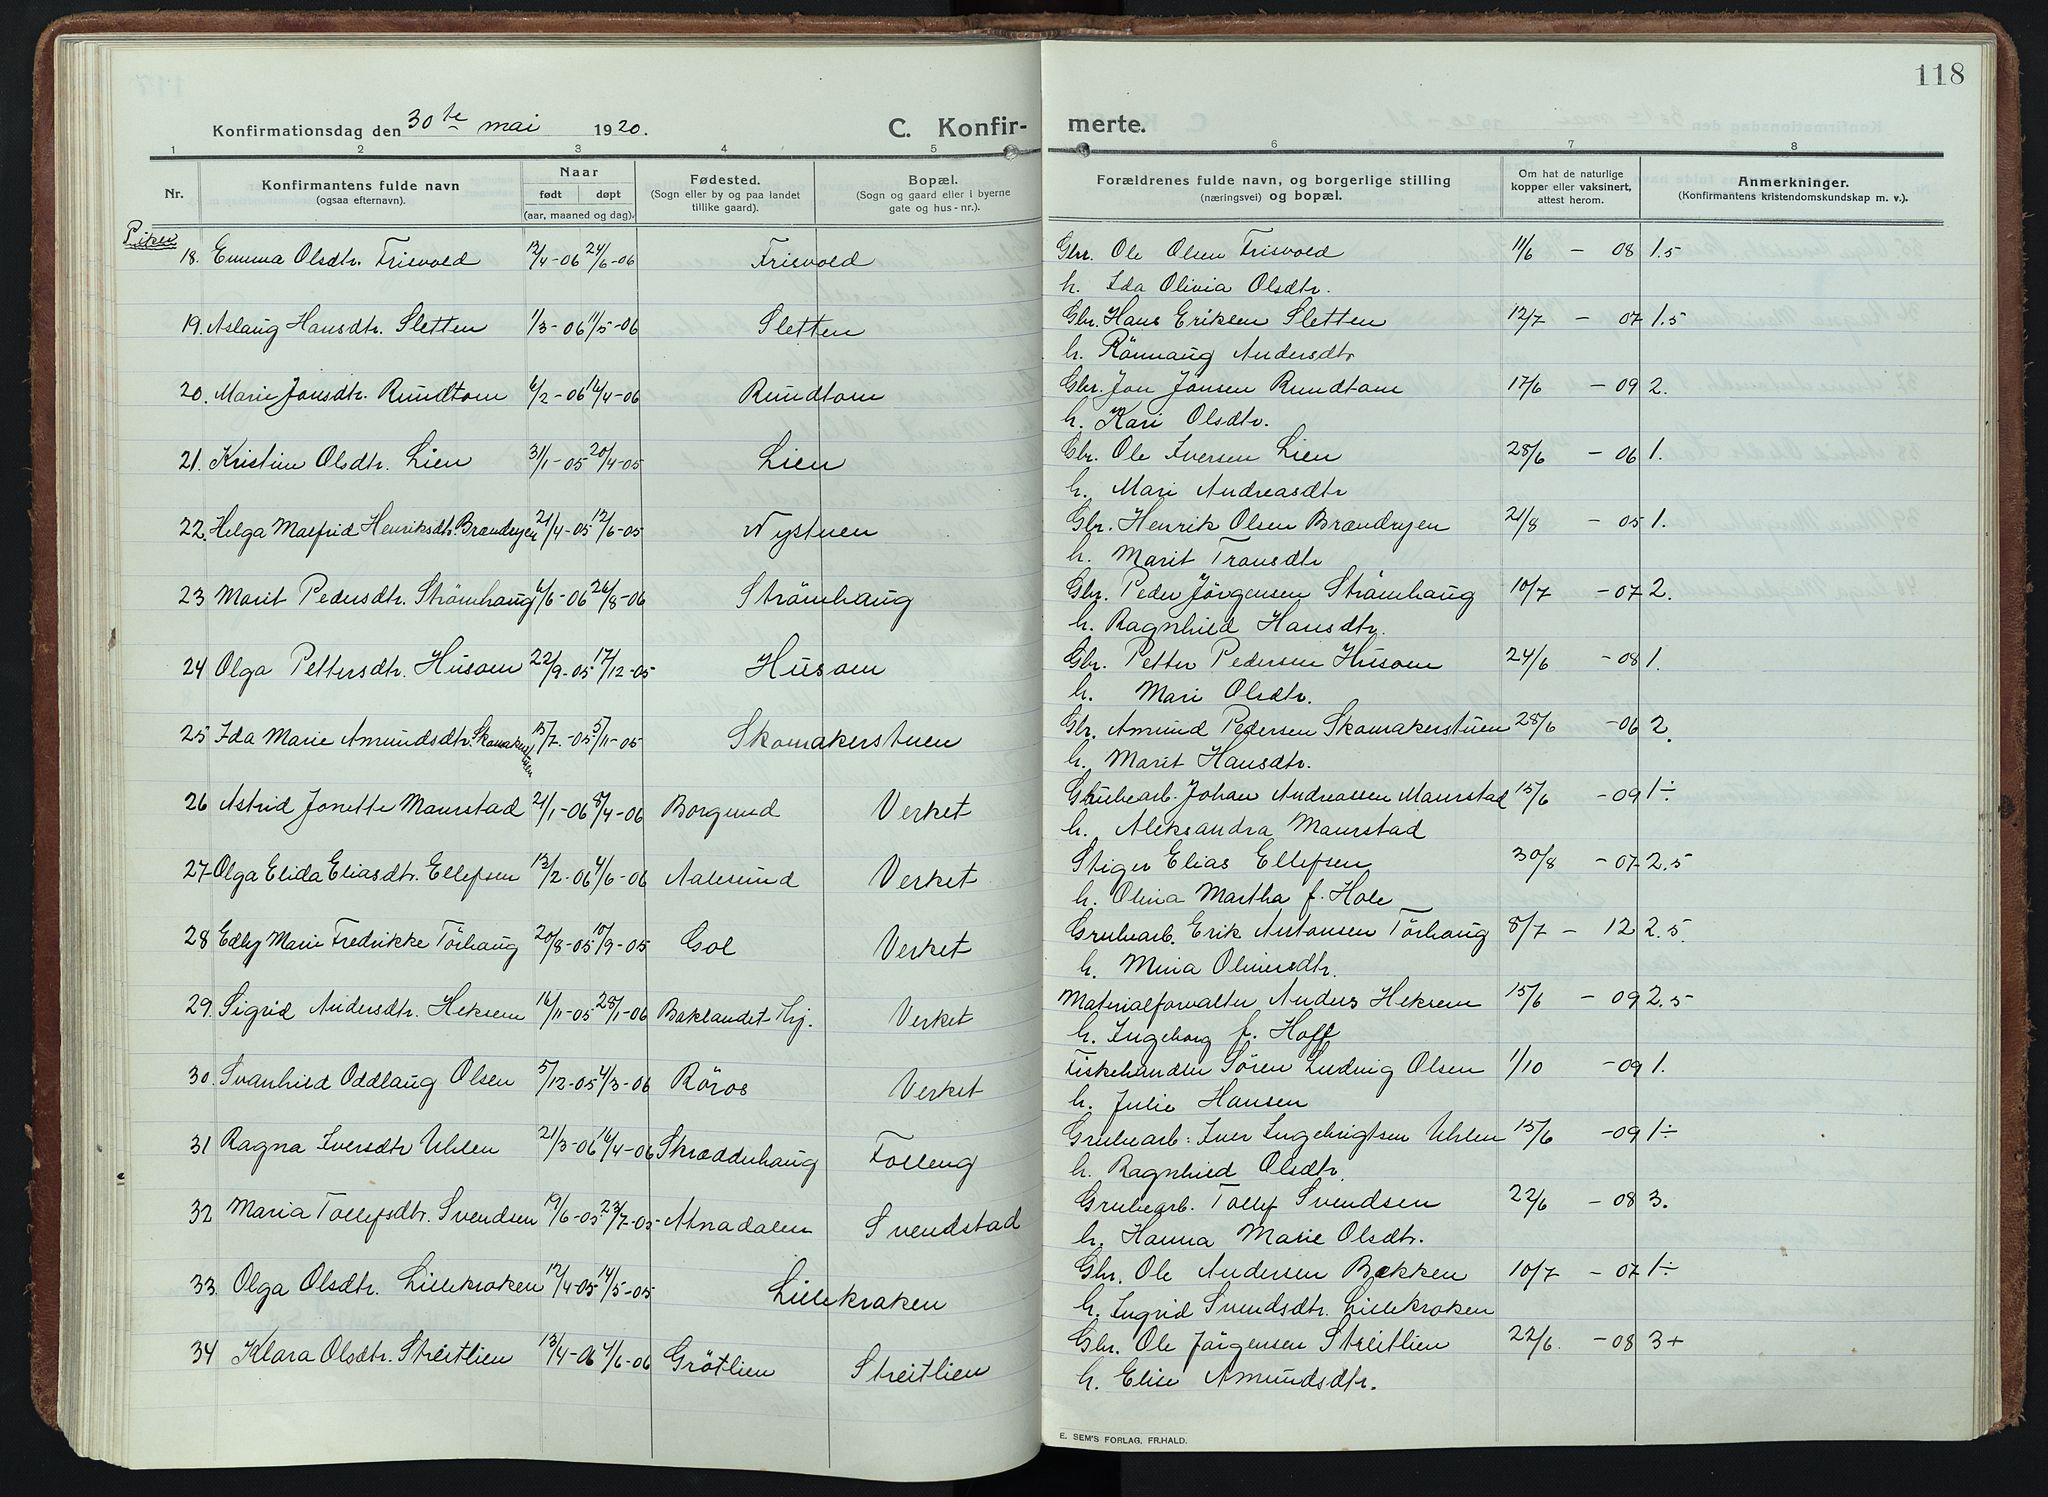 118
Konfirmationsdag den 30te mai 1920.
C. Konfirmerte.
1 2 3 4 5 6 7 8
Nr. Konfirmantens fulde navn (ogsaa efternavn). Naar født døpt (aar, maaned og dag). Fødested. (Sogn eller by og paa landet tillike gaard). Bopæl. (Sogn og gaard eller i byerne gate og hus-nr.). Forældrenes fulde navn, og borgerlige stilling (næringsvei) og bopæl. Om hat de naturlige kopper eller vaksinert, attest herom. Anmerkninger. (Konfirmantens kristendomskundskap m. v.).
Piker
18. Emma Olsdtr. Frisvold 12/4-06 24/6-06 Frisvold Gbr. Ole Olsen Frisvold 11/6 - 08 1.5
h. Ida Olivia Olsdtr.
19. Aslaug Hansdtr. Sletten 1/3-06 11/5-06 Sletten Gbr. Hans Eriksen Sletten 12/7 - 07 1.5
h. Rönnaug Andersdtr
20. Marie Jonsdtr. Rundtom 6/2-06 16/4-06 Rundtom Gbr. Jon Jonsen Rundtom 17/6 - 09 2.
h. Kari Olsdtr.
21. Kristine Olsdtr. Lien 31/1-05 20/4-05 Lien Gbr. Ole Iversen Lien 28/6 - 06 1.
h. Mari Andreasdtr
22. Helga Malfrid Henriksdtr. Brændryen 21/4-05 12/6-05 Nystuen Gbr. Henrik Olsen Brændryen 21/8 - 05 1.
h. Marit Tronsdtr
23 Marit Pedersdtr. Strömhaug 6/6-06 26/8-06 Strömhaug Gbr. Peder Jörgensen Strömhaug 10/7 - 07 2.
h. Ragnhild Hansdtr.
24 Olga Pettersdtr. Husom 22/9-05 17/12-05 Husom Gbr. Petter Pedersen Husom 24/6 - 08 1.
h. Mari Olsdtr.
25 Ida Marie Amundsdtr. Skomakerstuen 13/7-05 5/11-05 Skomakerstuen Gbr. Amund Pedersen Skomakerstuen 28/6 - 06 2.
h. Marit Hansdtr.
26 Astrid Jonette Maurstad 21/1-06 8/4-06 Borgund Verket Grubearb. Johan Andreassen Maurstad 15/6 - 09 1÷
h. Aleksandra Maurstad
27 Olga Elida Eliasdtr. Ellefsen 13/2-06 4/6-06 Aalesund Verket Stiger Elias Ellefsen 30/8 - 07 2.5
h. Olina Martha f. Hole
28 Edby Marie Fredrikke Törhaug 20/8-05 10/9-05 Gol Verket Grubearb. Erik Antonsen Törhaug 8/7 - 12 2.5.
h. Mina Oliversdtr.
29. Sigrid Andersdtr. Heksem 16/11-05 28/1-06 Baklandet Thj. Verket Materialforvalter Anders Heksem 15/6 - 09 2.5
h. Ingeborg f. Hoff
30. Svanhild Oddlaug Olsen 5/12-05 4/3-06 Röros Verket Fiskehandler Sören Ludvig Olsen 1/10 - 09 1.
h. Julie Hansen
31 Ragna Iversdtr Uhlen 21/3-06 16/4-06 Skrædderhaug Folleng Grubearb: Iver Ingebrigtsen Uhlen 15/6 - 09 1÷
h. Ragnhild Olsdtr.
32 Maria Tollefsdtr. Svendsen 19/6-05 23/7-05 Atnadalen Svendstad Grubearb. Tollef Svendsen 22/6 - 08 3.
h. Hanna Marie Olsdtr.
33 Olga Olsdtr. Lillekroken 12/4-05 14/5-05 Lillekroken Gbr. Ole Andersen Bekken 10/7 - 07 1÷
h. Ingrid Svendsdtr. Lillekroken
34 Klara Olsdtr. Streitlien 13/4-06 4/6-06 Grötlien Streitlien Gbr Ole Jörgensen Streitlien 22/6. - 08 3+
h. Elise Amundsdtr.
E. SEM'S FORLAG, FR.HALD.